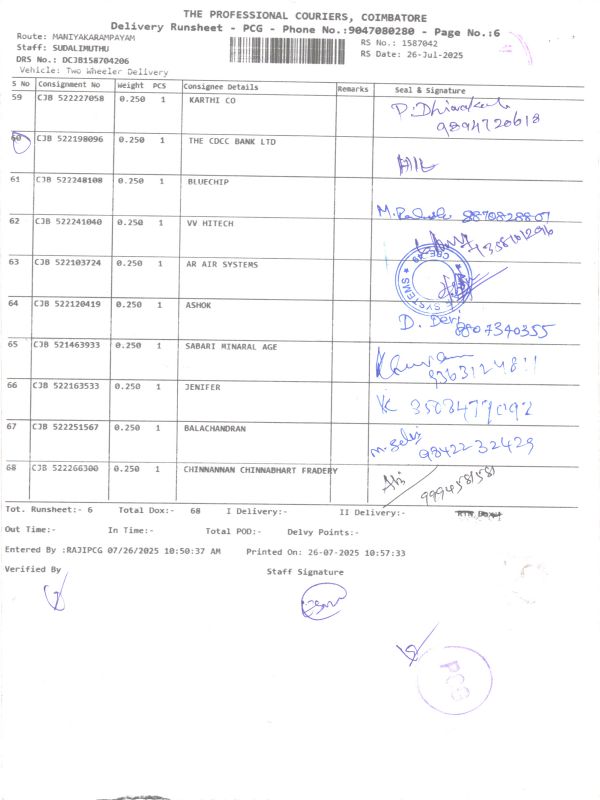 THE PROFESSIONAL COURIERS, COIMBATORE
Delivery Runsheet - PCG - Phone No.:9047080280 - Page No.:6
Route: MANIYAKARAMPAYAM
RS No.: 1587042
Staff: SUDALIMUTHU
RS Date: 26-Jul-2025
DRS No.: DCJB158704206
Vehicle: Two Wheeler Delivery
S No Consignment No Weight PCS Consignee Details Remarks Seal & Signature
59 CJB 522227058 0.250 1 KARTHI CO
9894720618
60 CJB 522198096 0.250 1 THE CDCC BANK LTD
61 CJB 522248108 0.250 1 BLUECHIP
62 CJB 522241040 0.250 1 VV HITECH
63 CJB 522103724 0.250 1 AR AIR SYSTEMS
64 CJB 522120419 0.250 1 ASHOK
D. Devi 8807340355
65 CJB 521463933 0.250 1 SABARI MINARAL AGE
66 CJB 522163533 0.250 1 JENIFER
67 CJB 522251567 0.250 1 BALACHANDRAN
M. Selvi 98422-32429
68 CJB 522266300 0.250 1 CHINNANNAN CHINNABHART FRADERY
Tot. Runsheet:- 6 Total Dox:- 68 I Delivery:- II Delivery:-
Out Time:- In Time:- Total POD:- Delvy Points:-
Entered By :RAJIPCG 07/26/2025 10:50:37 AM Printed On: 26-07-2025 10:57:33
Verified By Staff Signature
PCG